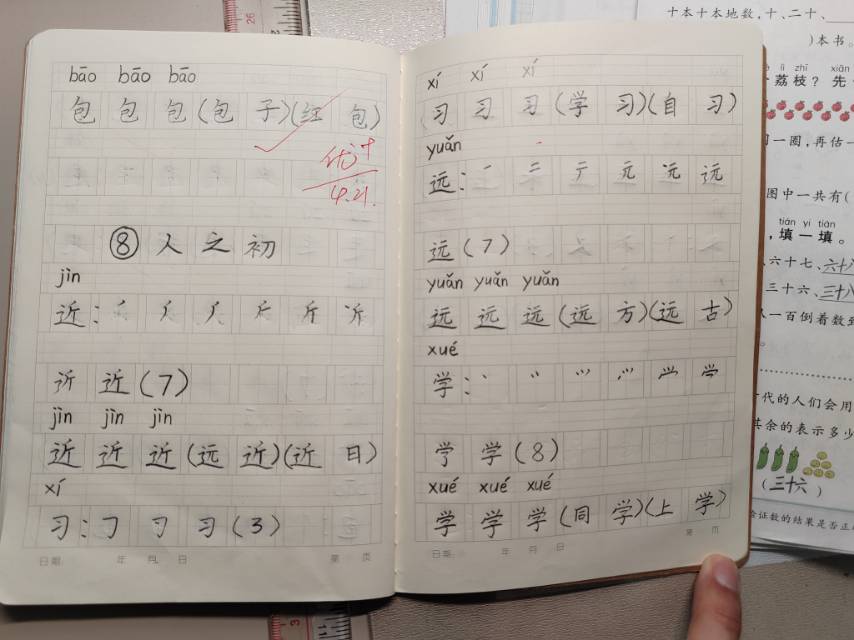 bāo bāo bāo
包 包 包(包 子)(红 包)
优++
4.21.
⑧ 人 之 初
jìn
近:
斤
近(7)
jìn jìn jìn
近 近 近(远 近)(近 日)
xí
习:㇆ 习(3)
日期: 年 月 日 第 页
xí xí xí
习 习 习(学 习)(自 习)
yuǎn
远:一 二 亍 元
远(7)
yuǎn yuǎn yuǎn
远 远 远(远 方)(远 古)
xué
学:
学(8)
xué xué xué
学 学 学(同 学)(上 学)
日期: 年 月 日 第 页
十本十本地数,十、二十、
)本书。
lì zhī xiān
荔枝?先
一圈,再估一
图中一共有(
tián yi tián
,填一填。
六十七、六十八
三十六、三十八
一百倒着数到
代的人们会用
其余的表示多少
(三十六)
验证数的结果是否正